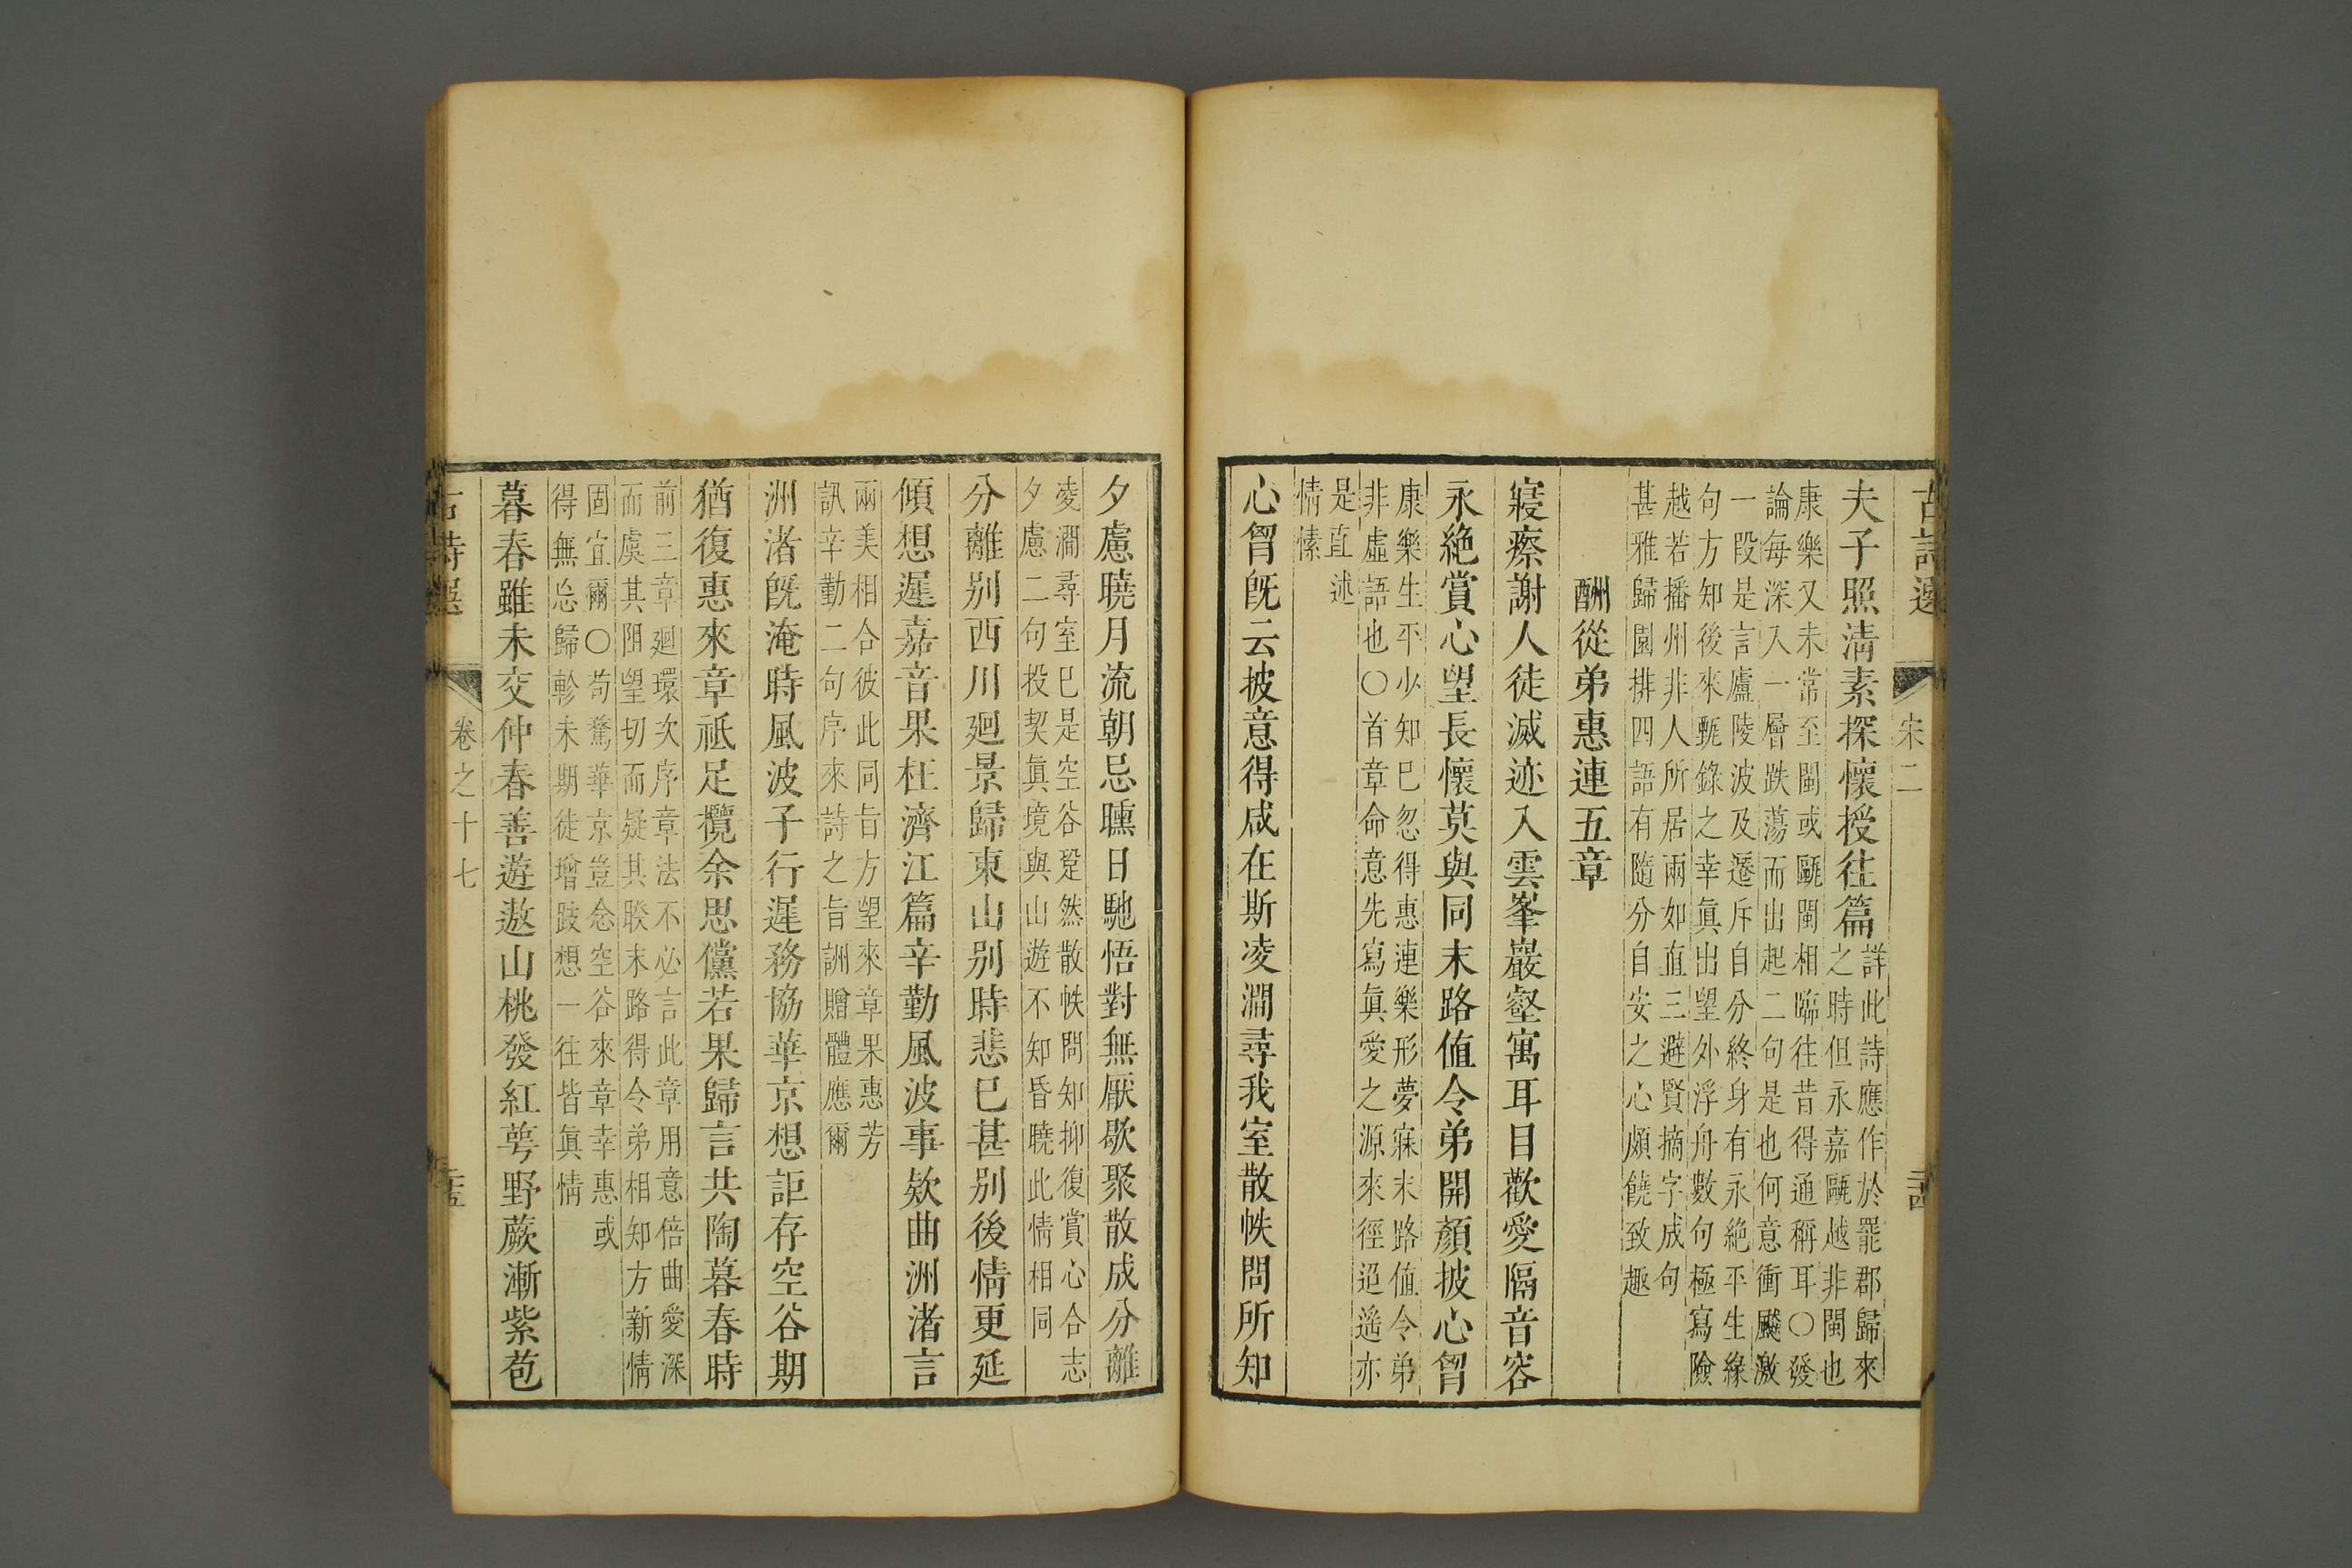 古詩選 宋二 二十四
夫子照淸素探懷授往篇
詳此詩應作於罷郡歸來
之時但永嘉甌越非閩也
康樂又未常至閩或甌閩相臨往昔得通稱耳○發
論每深入一層跌蕩而出起二句是也何意衝飈激
一段是言廬陵波及遷斥自分終身有永絶平生緣
句方知後來甄錄之幸眞出望外浮舟數句極寫險
越若播州非人所居兩如直三避賢摘字成句
甚雅歸園排四語有隨分自安之心頗饒致趣
酬從弟惠連五章
寢瘵謝人徒滅迹入雲峯巖壑寓耳目歡愛隔音容
永絶賞心望長懷莫與同末路值令弟開顏披心胷
康樂生平少知巳忽得惠連樂形夢寐末路值令弟
非虛語也○首章命意先寫眞愛之源來徑迢遙亦
是直述
情愫
心胷旣云披意得咸在斯凌澗尋我室散帙問所知
夕慮曉月流朝忌曛日馳悟對無厭歇聚散成分離
凌澗尋室巳是空谷跫然散帙問知抑復賞心合志
夕慮二句投契眞境與山遊不知昏曉此情相同
分離別西川廻景歸東山別時悲巳甚別後情更延
傾想遲嘉音果枉濟江篇辛勤風波事欵曲洲渚言
兩美相合彼此同旨方望來章果惠芳
訊辛勤二句序來詩之旨詶贈體應爾
洲渚旣淹時風波子行遲務協華京想詎存空谷期
猶復惠來章祇足攪余思儻若果歸言共陶暮春時
前三章廻環次序章法不必言此章用意倍曲愛深
而虞其阻望切而疑其暌末路得令弟相知方新情
固宜爾○苟騖華京豈念空谷來章幸惠或
得無忘歸軫未期徒增跂想一往皆眞情
暮春雖未交仲春善遊遨山桃發紅萼野蕨漸紫苞
古詩選 卷之十七 二十五